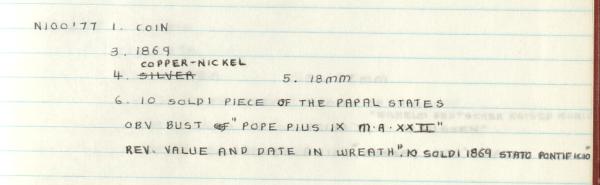 N100'77 1. COIN
3. 1869
COPPER-NICKEL
4. SILVER 5. 18mm
6. 10 SOLDI PIECE OF THE PAPAL STATES
OBV BUST OF "POPE PIUS IX M·A·XXII"
REV. VALUE AND DATE IN WREATH". 10 SOLDI 1869 STATO PONTIFICIO